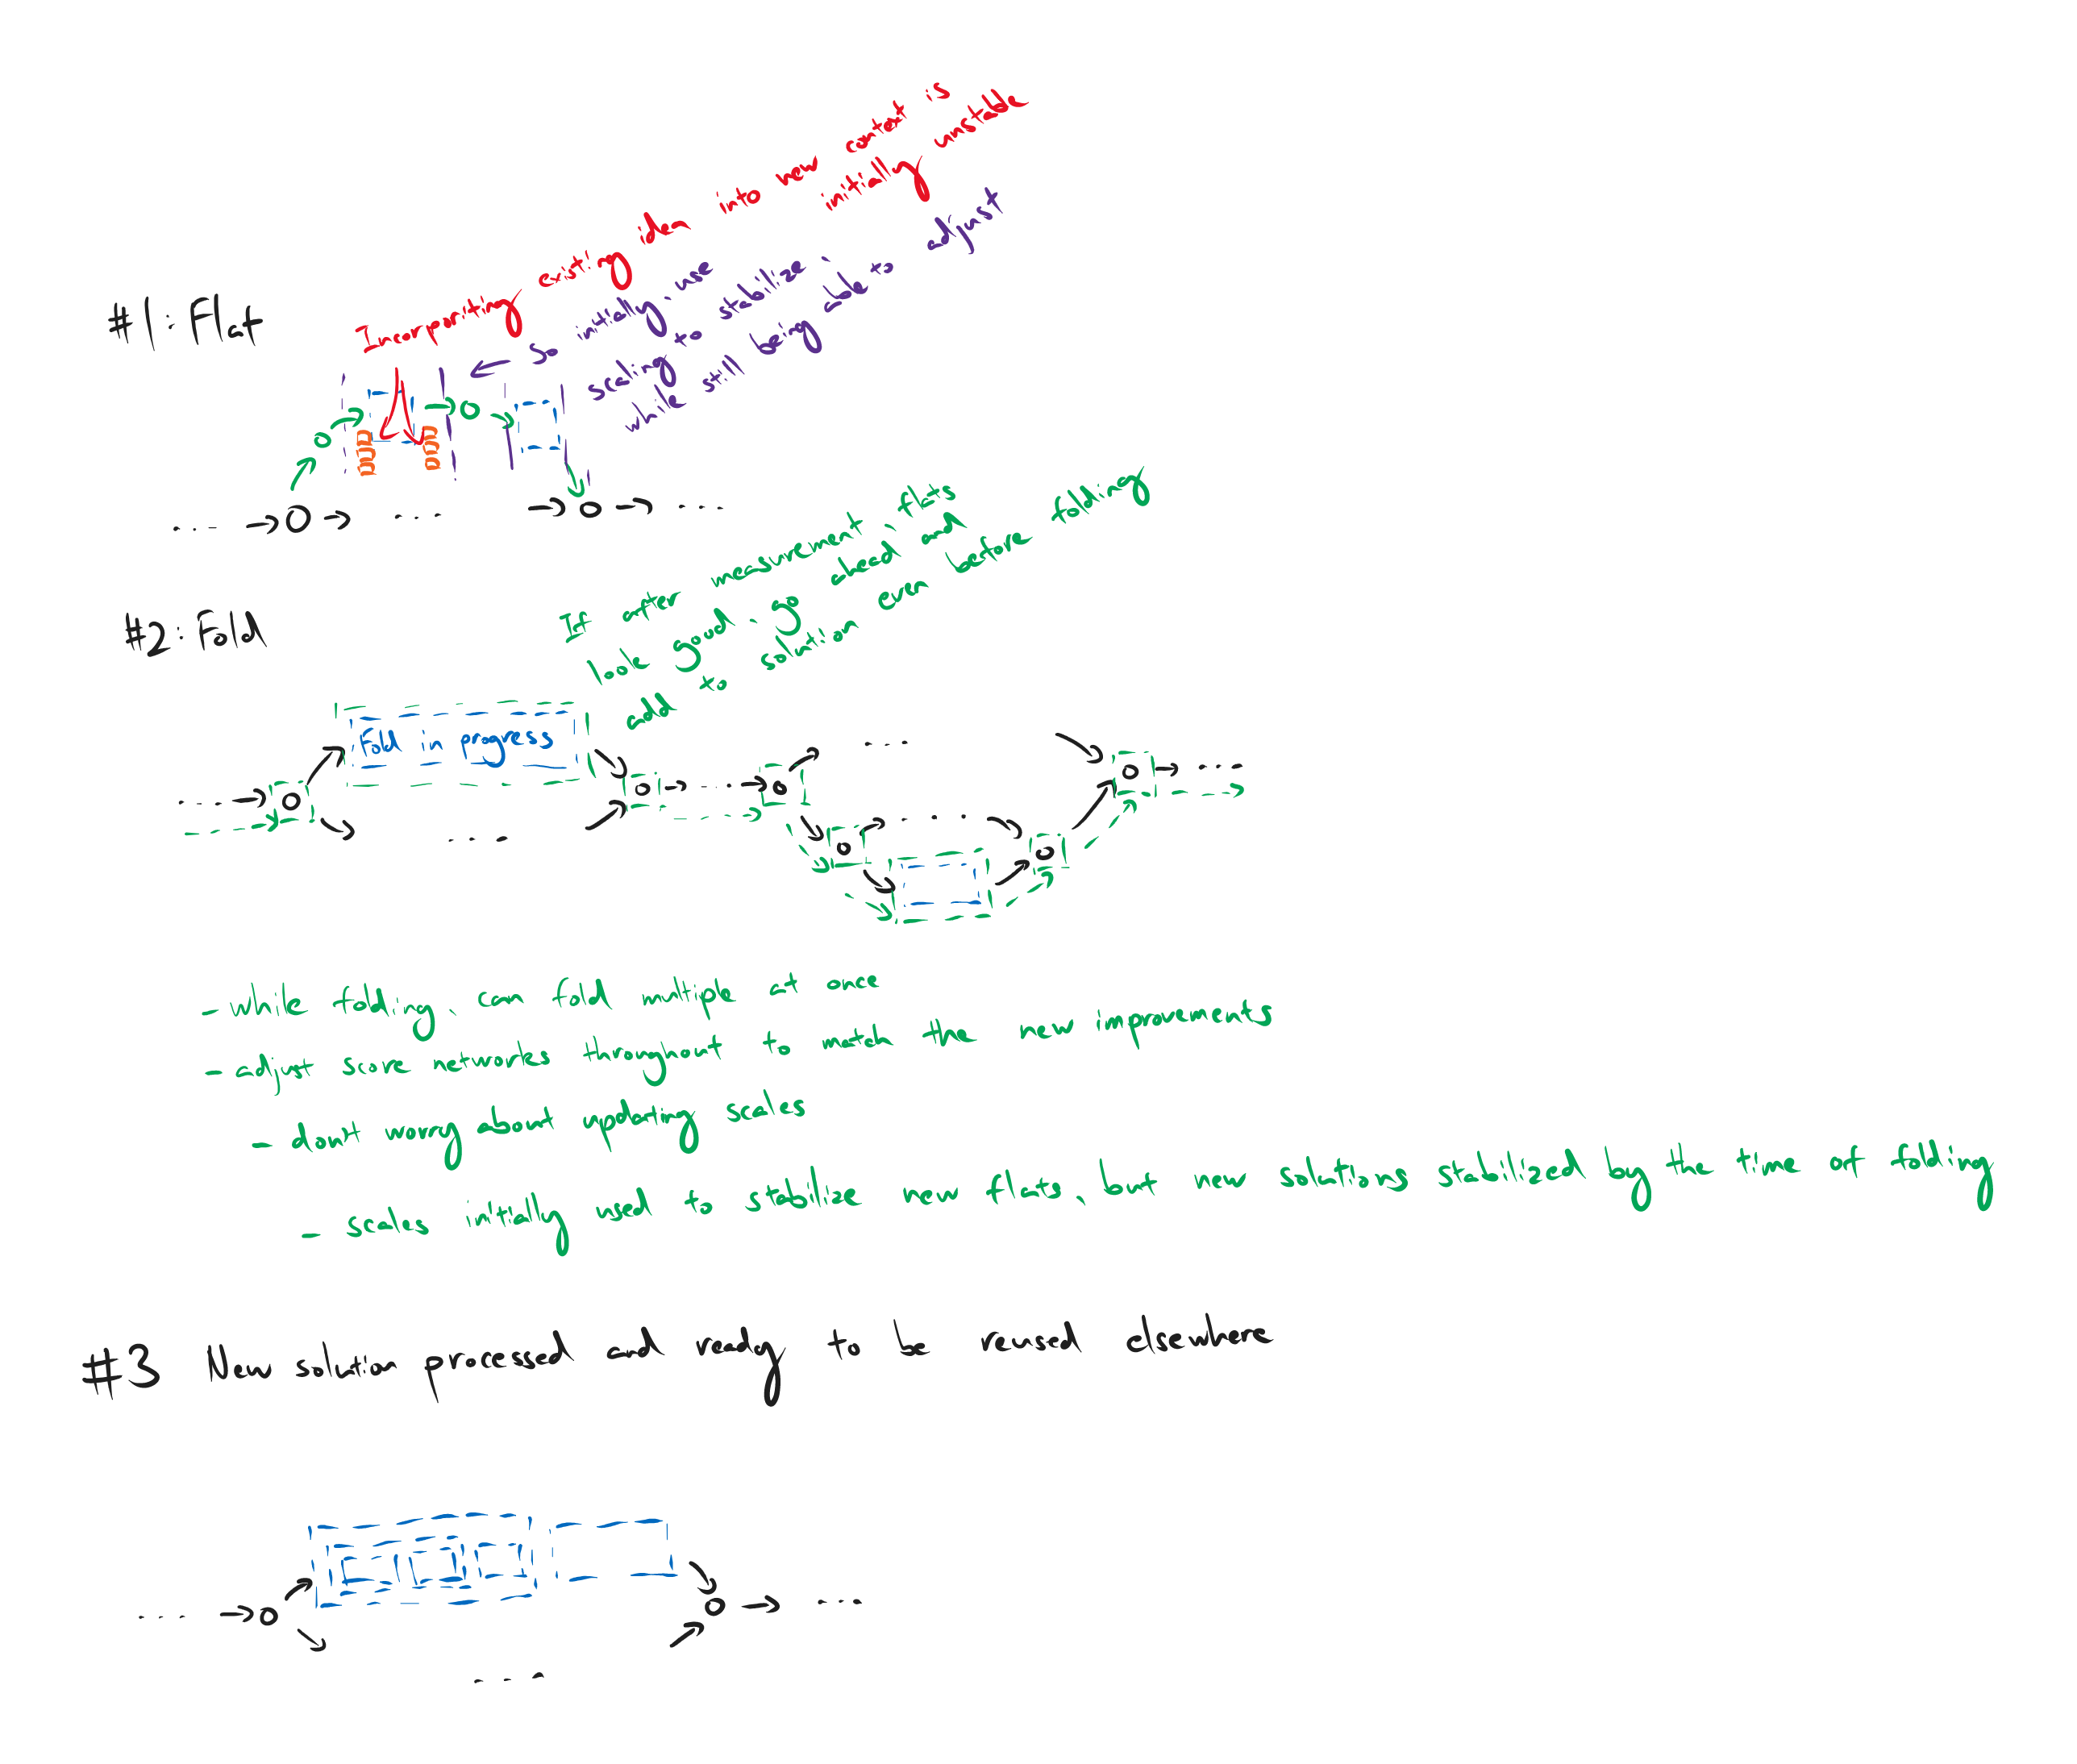 #1: Float
Incorporating existing idea into new context is
initially unstable
So initially use
scaling to stabilize,
while still being able to adjust
#2: Fold
If after measurement, it's
look good - go ahead and
add to solution even before folding
Fold in progress
- While folding, can fold multiple at once
- adjust score networks throughout to match the new improvements
- don't worry about updating scales
- scales initially used to stabilize new floats, but new solutions stabilized by the time of folding
#3 New solution processed and ready to be reused elsewhere